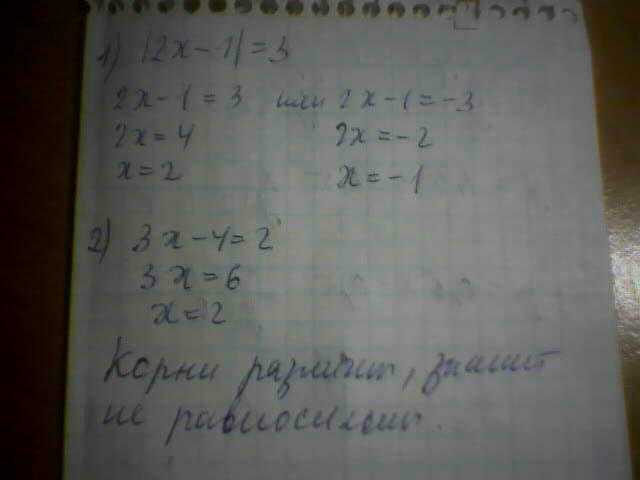 1) |2x-1|=3
2x-1=3 или 2x-1=-3
2x=4 2x=-2
x=2 x=-1
2) 3x-4=2
3x=6
x=2
Корни различны, значит
не равносильны.